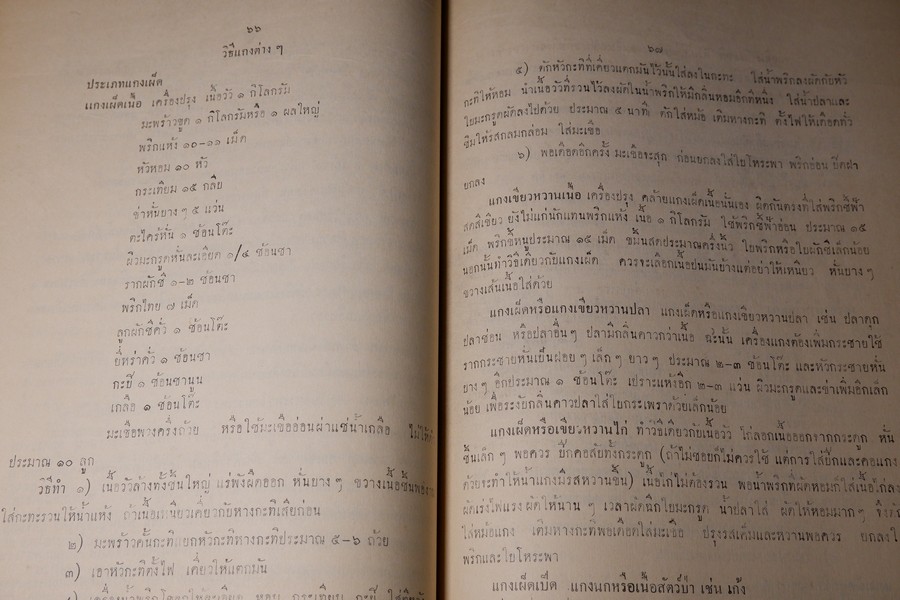 ๖๖
วิธีแกงต่าง ๆ
ประเภทแกงเผ็ด
แกงเผ็ดเนื้อ เครื่องปรุง เนื้อวัว ๑ กิโลกรัม
มะพร้าวขูด ๑ กิโลกรัมหรือ ๑ ผลใหญ่
พริกแห้ง ๑๐-๑๑ เม็ด
หัวหอม ๑๐ หัว
กระเทียม ๑๕ กลีบ
ข่าหั่นยาง ๆ ๕ แว่น
ตะไคร้หั่น ๑ ช้อนโต๊ะ
ผิวมะกรูดหั่นละเอียด ๑/๔ ช้อนชา
รากผักชี ๑-๒ ช้อนชา
พริกไทย ๗ เม็ด
ลูกผักชีคั่ว ๑ ช้อนโต๊ะ
ยี่หร่าคั่ว ๑ ช้อนชา
กะปิ ๑ ช้อนชานูน
เกลือ ๑ ช้อนโต๊ะ
มะเขือพวงครึ่งถ้วย หรือใช้มะเขืออ่อนผ่าแช่น้ำเกลือ ไม่ให้ดำ
ประมาณ ๑๐ ลูก
วิธีทำ ๑) เนื้อวัวล้างทั้งชิ้นใหญ่ แร่พังผืดออก หั่นยาง ๆ ขวางเนื้อชิ้น
ใส่กะทะรวนให้น้ำแห้ง ถ้าเนื้อเหนียวเคี่ยวกับหางกะทิเสียก่อน
๒) มะพร้าวคั้นกะทิแยกหัวกะทิหางกะทิประมาณ ๕-๖ ถ้วย
๓) เอาหัวกะทิตั้งไฟ เคี่ยวให้แตกมัน
๔) เครื่องน้ำพริกโขลกให้ละเอียด หอม กระเทียม กะปิ
๖๗
๕) ตักหัวกะทิที่เคี่ยวแตกมันไว้นั้นใส่ลงในกะทะ ใส่น้ำพริกลงผัดกับหัว
กะทิให้หอม นำเนื้อวัวที่รวนไว้ลงผัดในน้ำพริกให้มีกลิ่นหอมอีกทีหนึ่ง ใส่น้ำปลาและ
ใบมะกรูดผัดลงไปด้วย ประมาณ ๕ นาที ตักใส่หม้อ เติมหางกะทิ ตั้งไฟให้เดือดทั่ว
ชิมให้รสกลมกล่อม ใส่มะเขือ
๖) พอเดือดอีกครั้ง มะเขือจะสุก ก่อนยกลงใส่ใบโหระพา พริกอ่อน ปิดฝา
ยกลง
แกงเขียวหวานเนื้อ เครื่องปรุง คล้ายแกงเผ็ดเนื้อนั่นเอง ผิดกันตรงที่ใส่พริกชี้ฟ้า
สดสีเขียว ยังไม่แก่นักแทนพริกแห้ง เนื้อ ๑ กิโลกรัม ใช้พริกชี้ฟ้าอ่อน ประมาณ ๑๕
เม็ด พริกขี้หนูประมาณ ๑๕ เม็ด ขมิ้นสดประมาณครึ่งนิ้ว ใบพริกหรือใบผักชีเล็กน้อย
นอกนั้นทำวิธีเดียวกับแกงเผ็ด ควรจะเลือกเนื้อปนมันบ้างแต่อย่าให้เหนียว หั่นยาง ๆ
ขวางเส้นเนื้อใส่ด้วย
แกงเผ็ดหรือแกงเขียวหวานปลา แกงเผ็ดหรือแกงเขียวหวานปลา เช่น ปลาดุก
ปลาช่อน หรือปลาอื่น ๆ ปลามีกลิ่นคาวกว่าเนื้อ ฉะนั้น เครื่องแกงต้องเพิ่มกระชายใช้
รากกระชายหั่นเป็นฝอย ๆ เล็ก ๆ ยาว ๆ ประมาณ ๒-๓ ช้อนโต๊ะ และหัวกระชายหั่น
ยาง ๆ อีกประมาณ ๑ ช้อนโต๊ะ เปราะแห้งอีก ๒-๓ แว่น ผิวมะกรูดและข่าเพิ่มอีกเล็ก
น้อย เพื่อระงับกลิ่นคาวปลาใส่ใบกระเพราด้วยเล็กน้อย
แกงเผ็ดหรือเขียวหวานไก่ ทำวิธีเดียวกับเนื้อวัว ไก่ลอกเนื้อออกจากกระดูก หั่น
ชิ้นเล็ก ๆ พอควร ปีกคอสับทั้งกระดูก (ถ้าไม่ชอบก็ไม่ควรใช้ แต่การใส่ปีกและคอแกง
ด้วยจะทำให้น้ำแกงมีรสหวานขึ้น) เนื้อไก่ไม่ต้องรวน พอน้ำพริกที่ผัดหอมก็ใส่เนื้อไก่ลง
ผัดเร่งไฟแรง ผัดให้นาน ๆ เวลาผัดฉีกใบมะกรูด น้ำปลาใส่ ผัดให้หอมมาก ๆ
ใส่หม้อแกง เติมหางกะทิพอเดือดใส่มะเขือ ปรุงรสเค็มและหวานพอควร ยกลงใส่
พริกและใบโหระพา
แกงเผ็ดเป็ด แกงนกหรือเนื้อสัตว์ป่า เช่น เก้ง